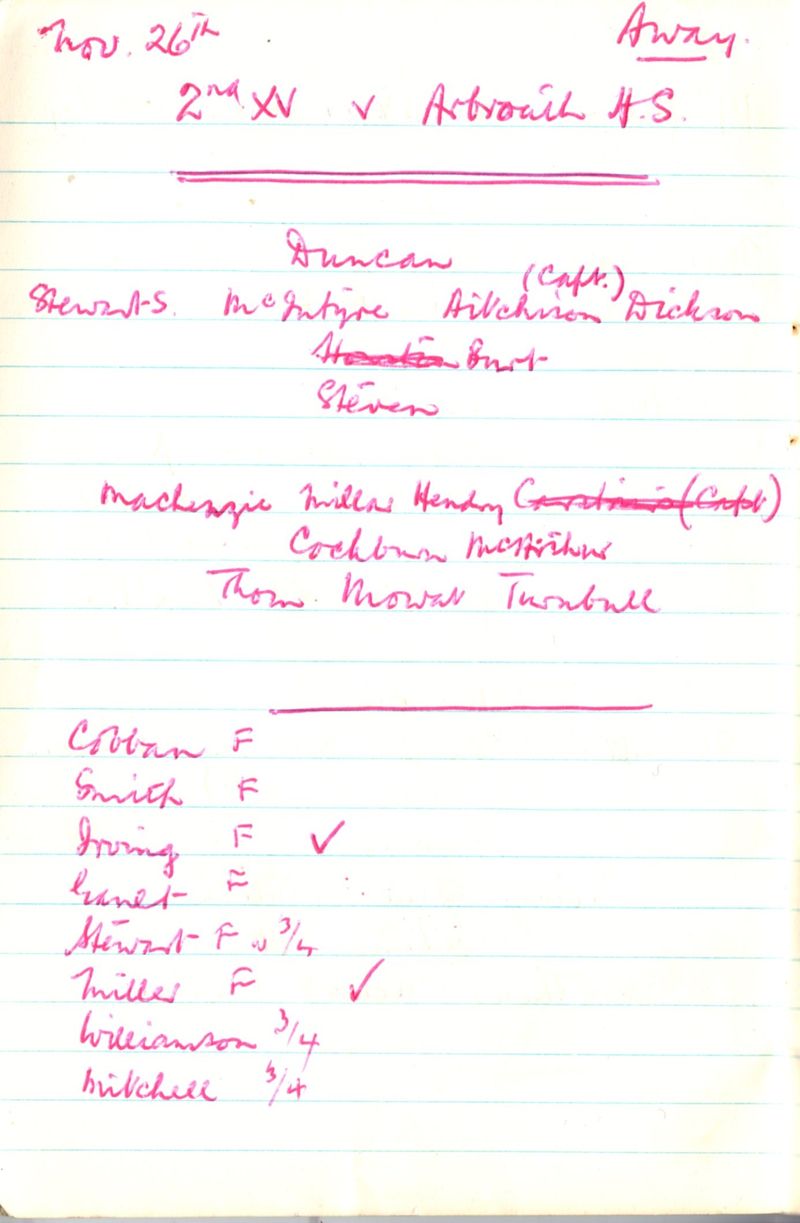 Nov. 26th Away.
2nd XV v Arbroath H.S.
Duncan
(Capt.)
Stewart S. McIntyre Aitchison Dickson
Burt
Steven
Mackenzie Millar Hendry (Capt)
Cockburn McArthur
Thom Mowat Turnbull
Cobban F
Smith F
Irving F ✓
F
Stewart F or 3/4
Miller F ✓
Williamson 3/4
Mitchell 3/4